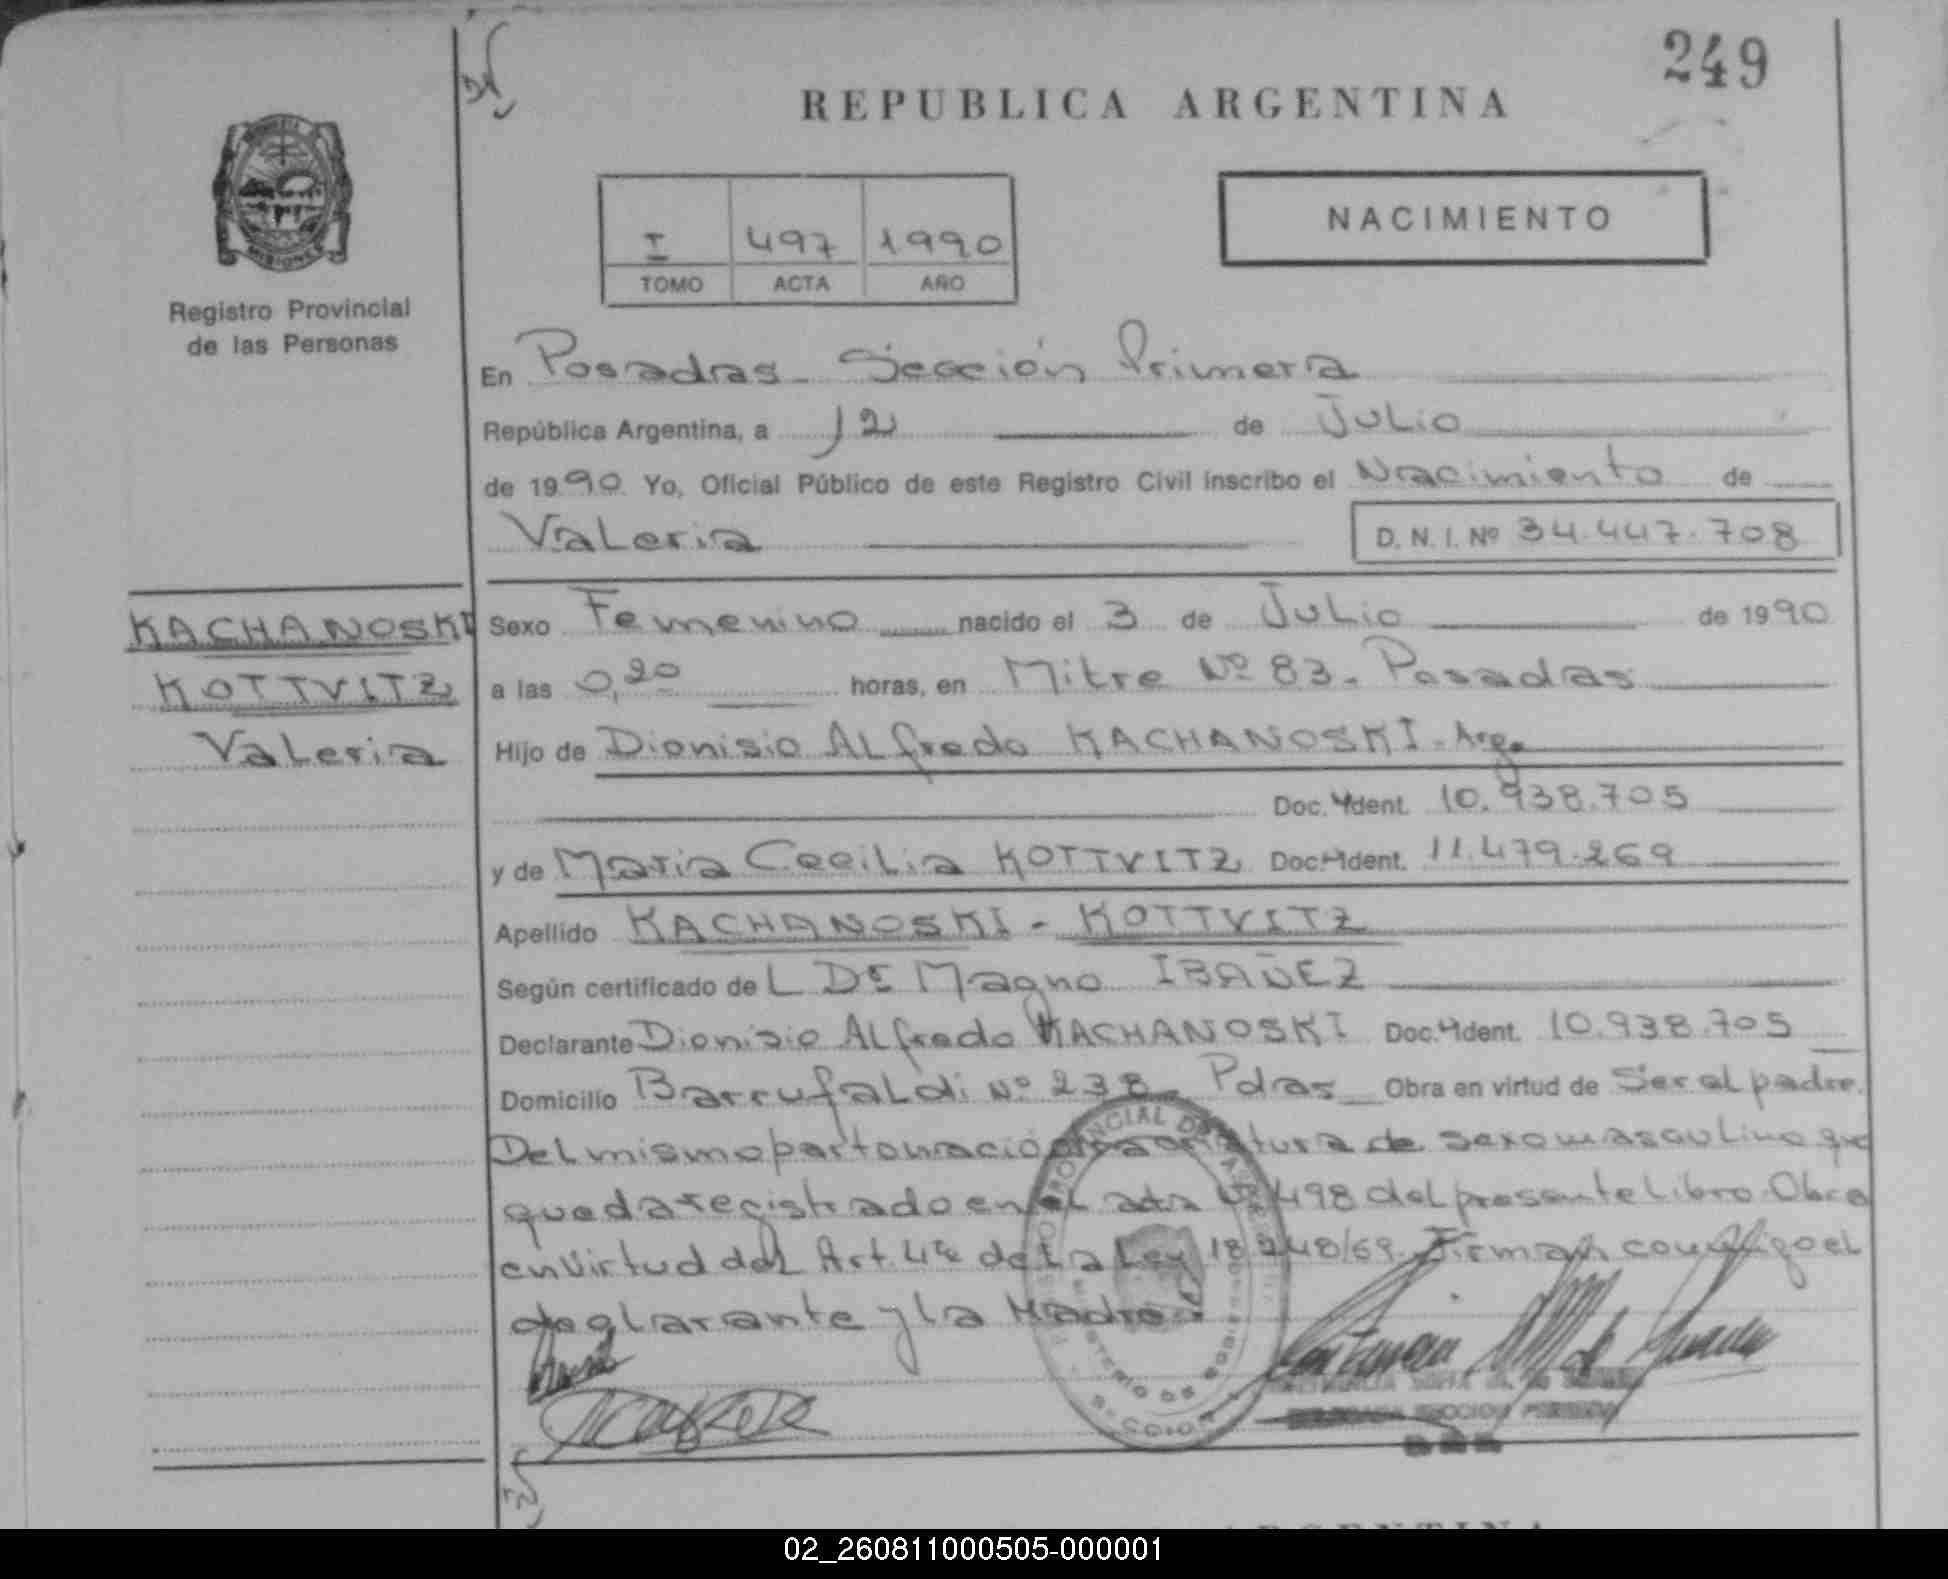 249
REPUBLICA ARGENTINA
MISIONES
Registro Provincial
de las Personas
I 497 1990
TOMO ACTA AÑO
NACIMIENTO
En Posadas - Sección Primera
República Argentina, a 12 de Julio
de 1990 Yo, Oficial Público de este Registro Civil inscribo el Nacimiento de
Valeria D. N. I. Nº 34.447.708
KACHANOSKI
KOTTVITZ
Valeria
Sexo Femenino nacido el 3 de Julio de 1990
a las 0,20 horas, en Mitre Nº 83 - Posadas
Hijo de Dionisio Alfredo KACHANOSKI - Arg.
Doc. Ident. 10.938.705
y de Maria Cecilia KOTTVITZ Doc. Ident. 11.479.269
Apellido KACHANOSKI - KOTTVITZ
Según certificado de L Dr Magno IBAÑEZ
Declarante Dionisio Alfredo KACHANOSKI Doc. Ident. 10.938.705
Domicilio Barrufaldi Nº 238 - Pdas Obra en virtud de Ser el padre.
Del mismo parto nació otra criatura de sexo masculino que
queda registrado en el acta Nº 498 del presente Libro. Obra
en virtud del Art. 4to de la Ley 18248/69. Firman conmigo el
declarante y la Madre
ARGENTINA
02_260811000505-000001